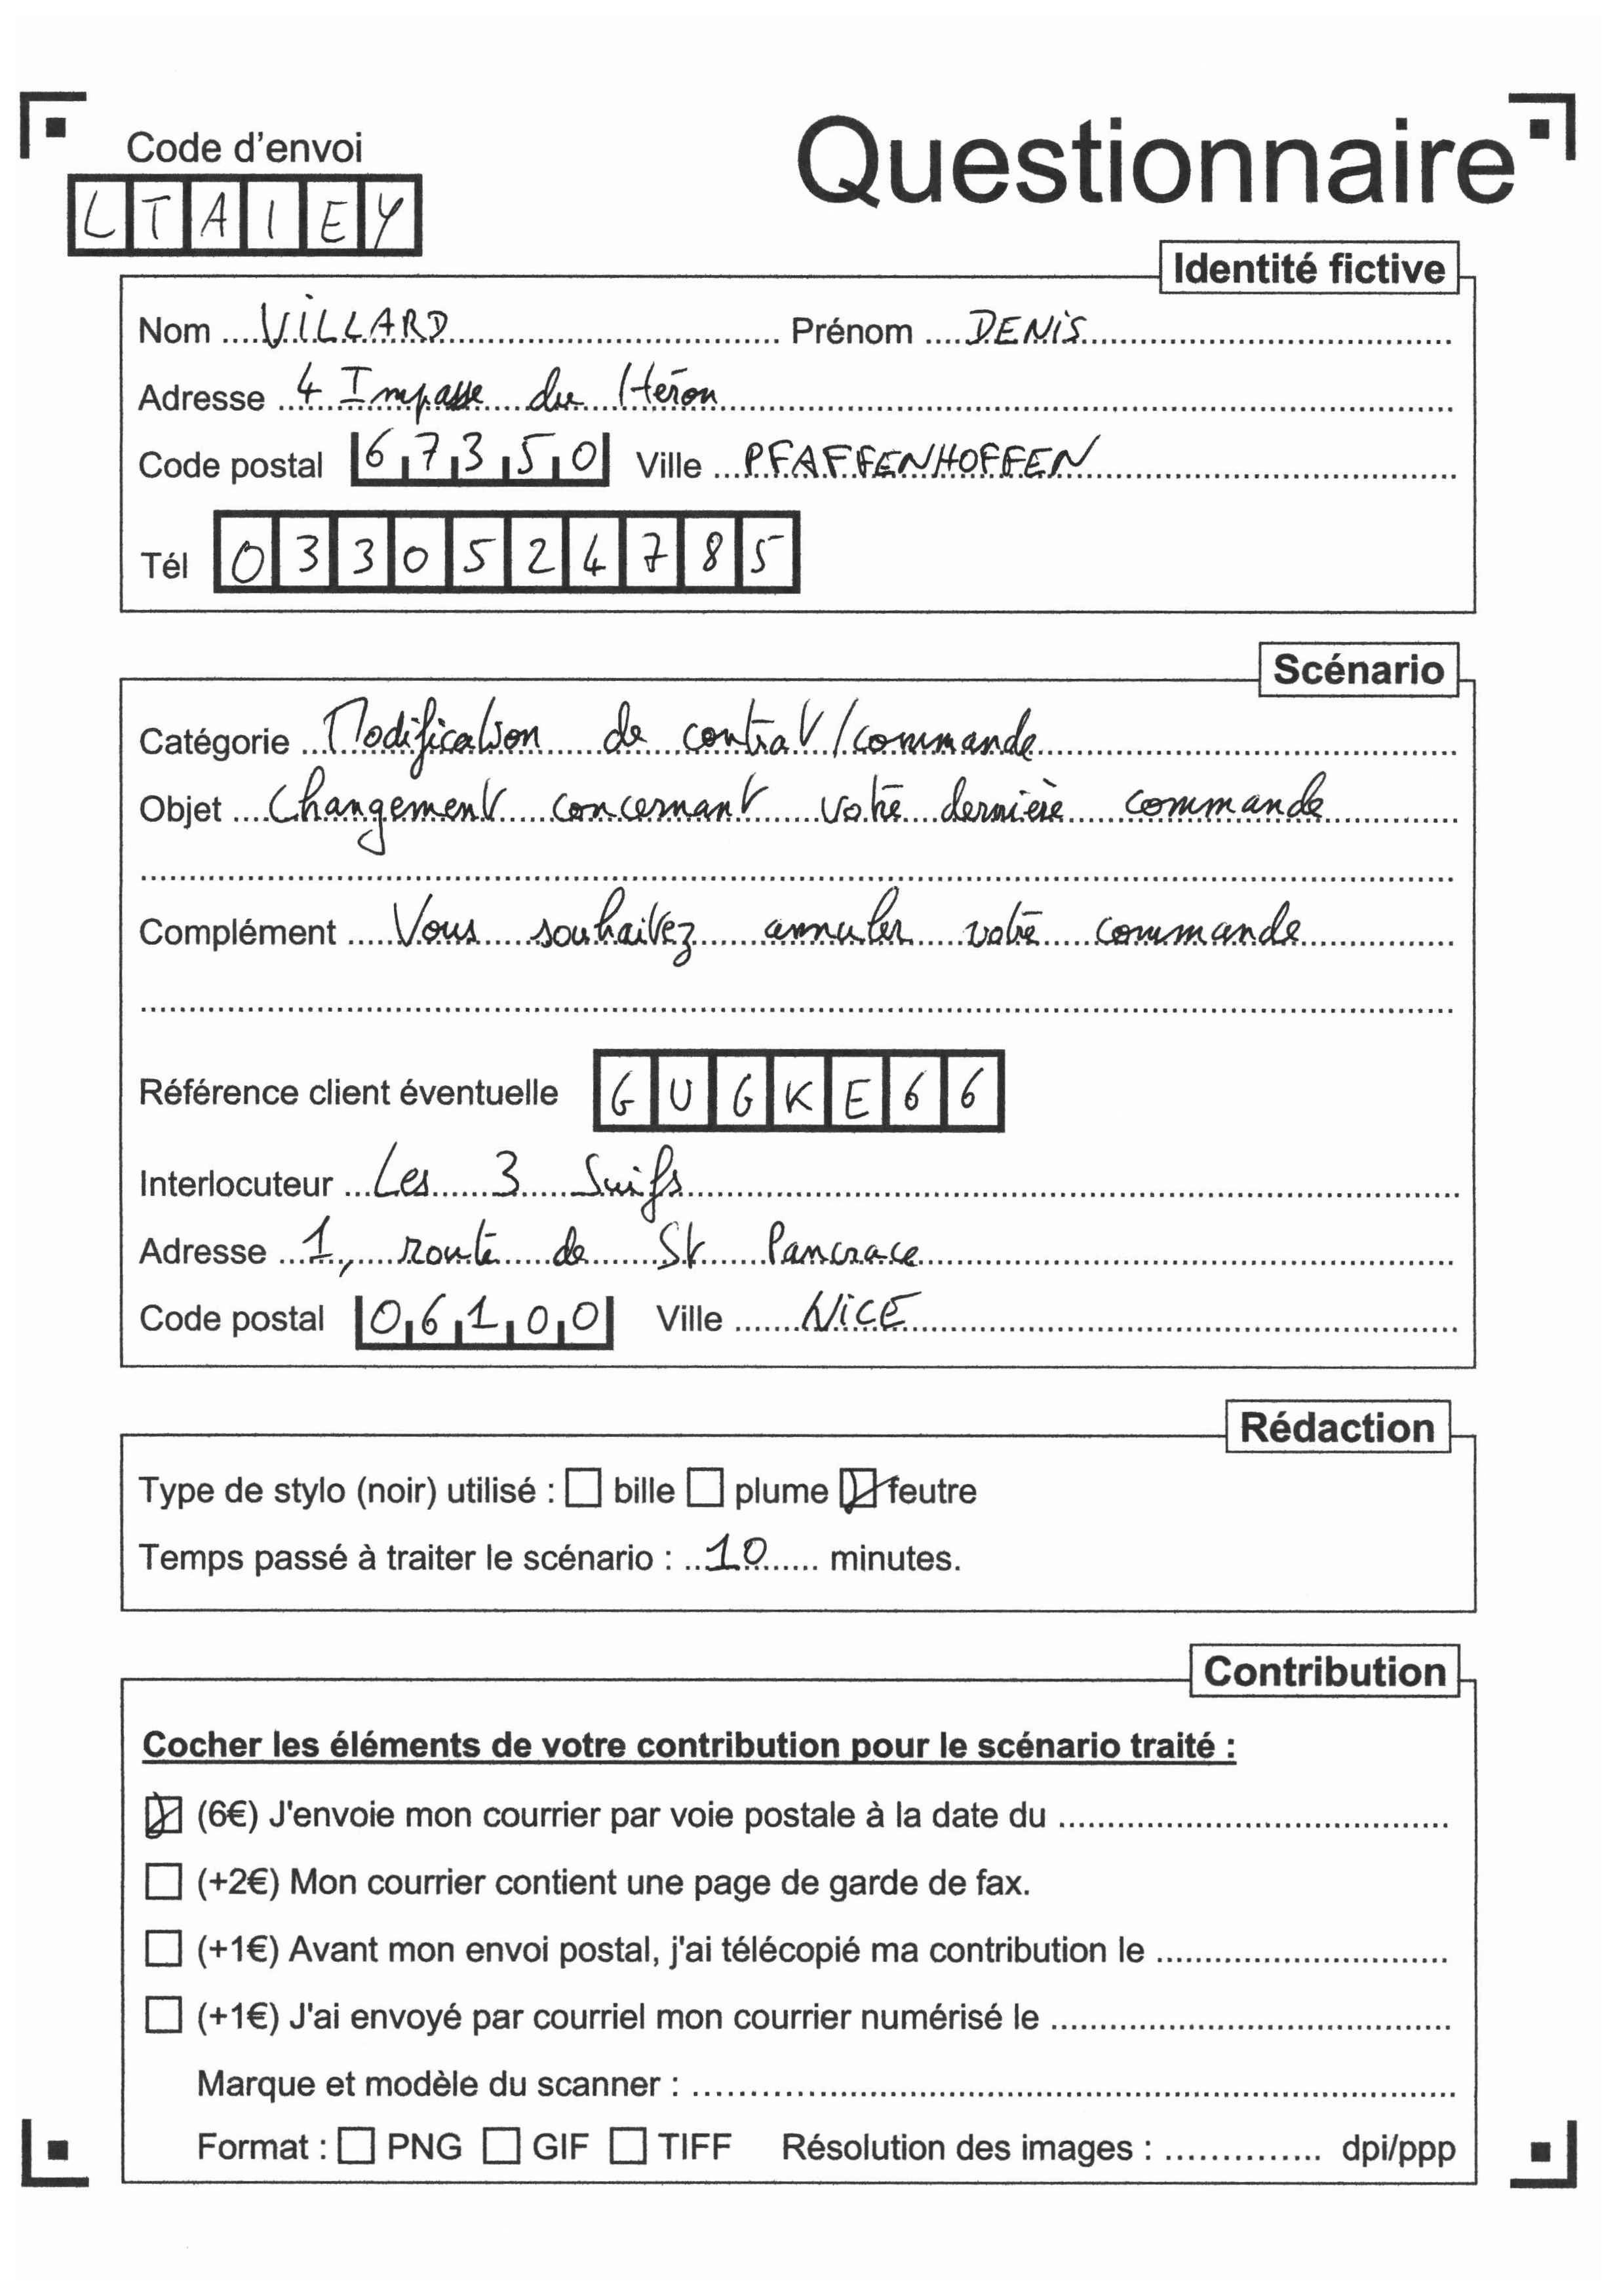 Code d'envoi
Questionnaire
LTAIEY
Identité fictive
Nom VILLARD Prénom DENIS
Adresse 4 Impasse du Héron
Code postal 67350 Ville PFAFFENHOFFEN
Tél 0330524785
Scénario
Catégorie Modification de contrat/commande
Objet Changement concernant votre dernière commande
Complément Vous souhaitez annuler votre commande
Référence client éventuelle GUGKE66
Interlocuteur Les 3 Suifs
Adresse 1, route de St Pancrace
Code postal 06100 Ville NICE
Rédaction
Type de stylo (noir) utilisé : bille plume feutre
Temps passé à traiter le scénario : 10 minutes.
Contribution
Cocher les éléments de votre contribution pour le scénario traité :
(6€) J'envoie mon courrier par voie postale à la date du
(+2€) Mon courrier contient une page de garde de fax.
(+1€) Avant mon envoi postal, j'ai télécopié ma contribution le
(+1€) J'ai envoyé par courriel mon courrier numérisé le
Marque et modèle du scanner :
Format : PNG GIF TIFF Résolution des images : dpi/ppp